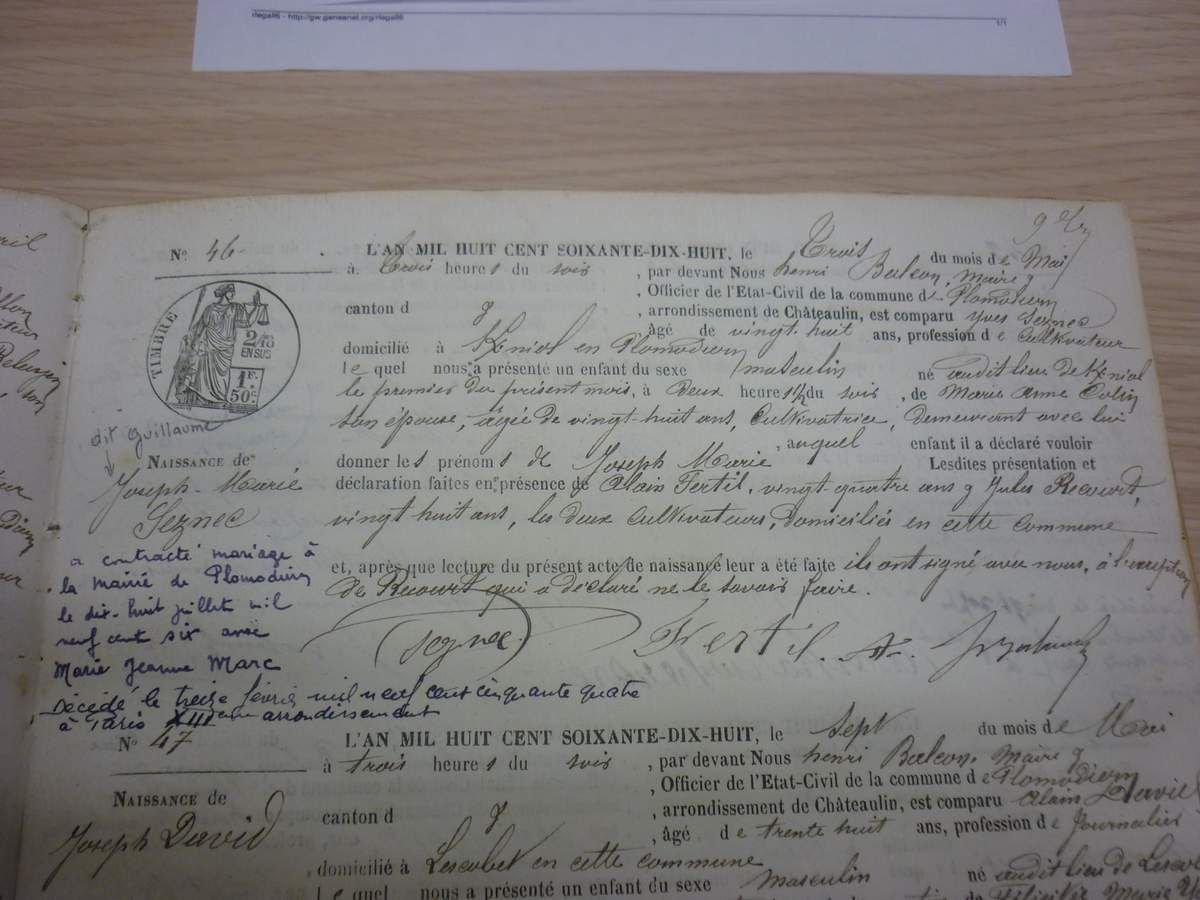 rlegall6 - http://gw.geneanet.org/rlegall6 1/1
N° 46
L'AN MIL HUIT CENT SOIXANTE-DIX-HUIT, le Trois du mois de Mai
à trois heures du soir, par devant Nous henri Balcon, Maire
, Officier de l'Etat-Civil de la commune de Plomodiern
canton d , arrondissement de Châteaulin, est comparu Yves Seznec
âgé de vingt huit ans, profession de Cultivateur
domicilié à Kniol en Plomodiern
lequel nous a présenté un enfant du sexe masculin né audit lieu de Kniol
le premier du présent mois, à deux heure 1/2 du soir, de Marie Anne Colin
son épouse, âgée de vingt-huit ans, Cultivatrice, demeurant avec lui
, auquel enfant il a déclaré vouloir
donner les prénoms de Joseph Marie Lesdites présentation et
déclaration faites en présence de Alain Fertil, vingt quatre ans & Jules Recourt,
vingt huit ans, les deux cultivateurs, domiciliés en cette commune
et, après que lecture du présent acte de naissance leur a été faite ils ont signé avec nous, à l'exception
de Recourt qui a déclaré ne le savoir faire.
Seznec Fertil
TIMBRE
2/10
EN SUS
1 F.
50 C.
dit Guillaume
NAISSANCE de
Joseph-Marie
Seznec
a contracté mariage à
la mairie de Plomodiern
le dix-huit juillet mil
neuf cent six avec
Marie Jeanne Marc
Décédé le treize février mil neuf cent cinquante quatre
à Paris arrondissement
N° 47
L'AN MIL HUIT CENT SOIXANTE-DIX-HUIT, le Sept du mois de Mai
à trois heures du soir, par devant Nous henri Balcon, Maire &
, Officier de l'Etat-Civil de la commune de Plomodiern
canton d , arrondissement de Châteaulin, est comparu Alain David
âgé de trente huit ans, profession de Journalier
NAISSANCE de
Joseph David
domicilié à Lescobet en cette commune
lequel nous a présenté un enfant du sexe masculin né audit lieu de